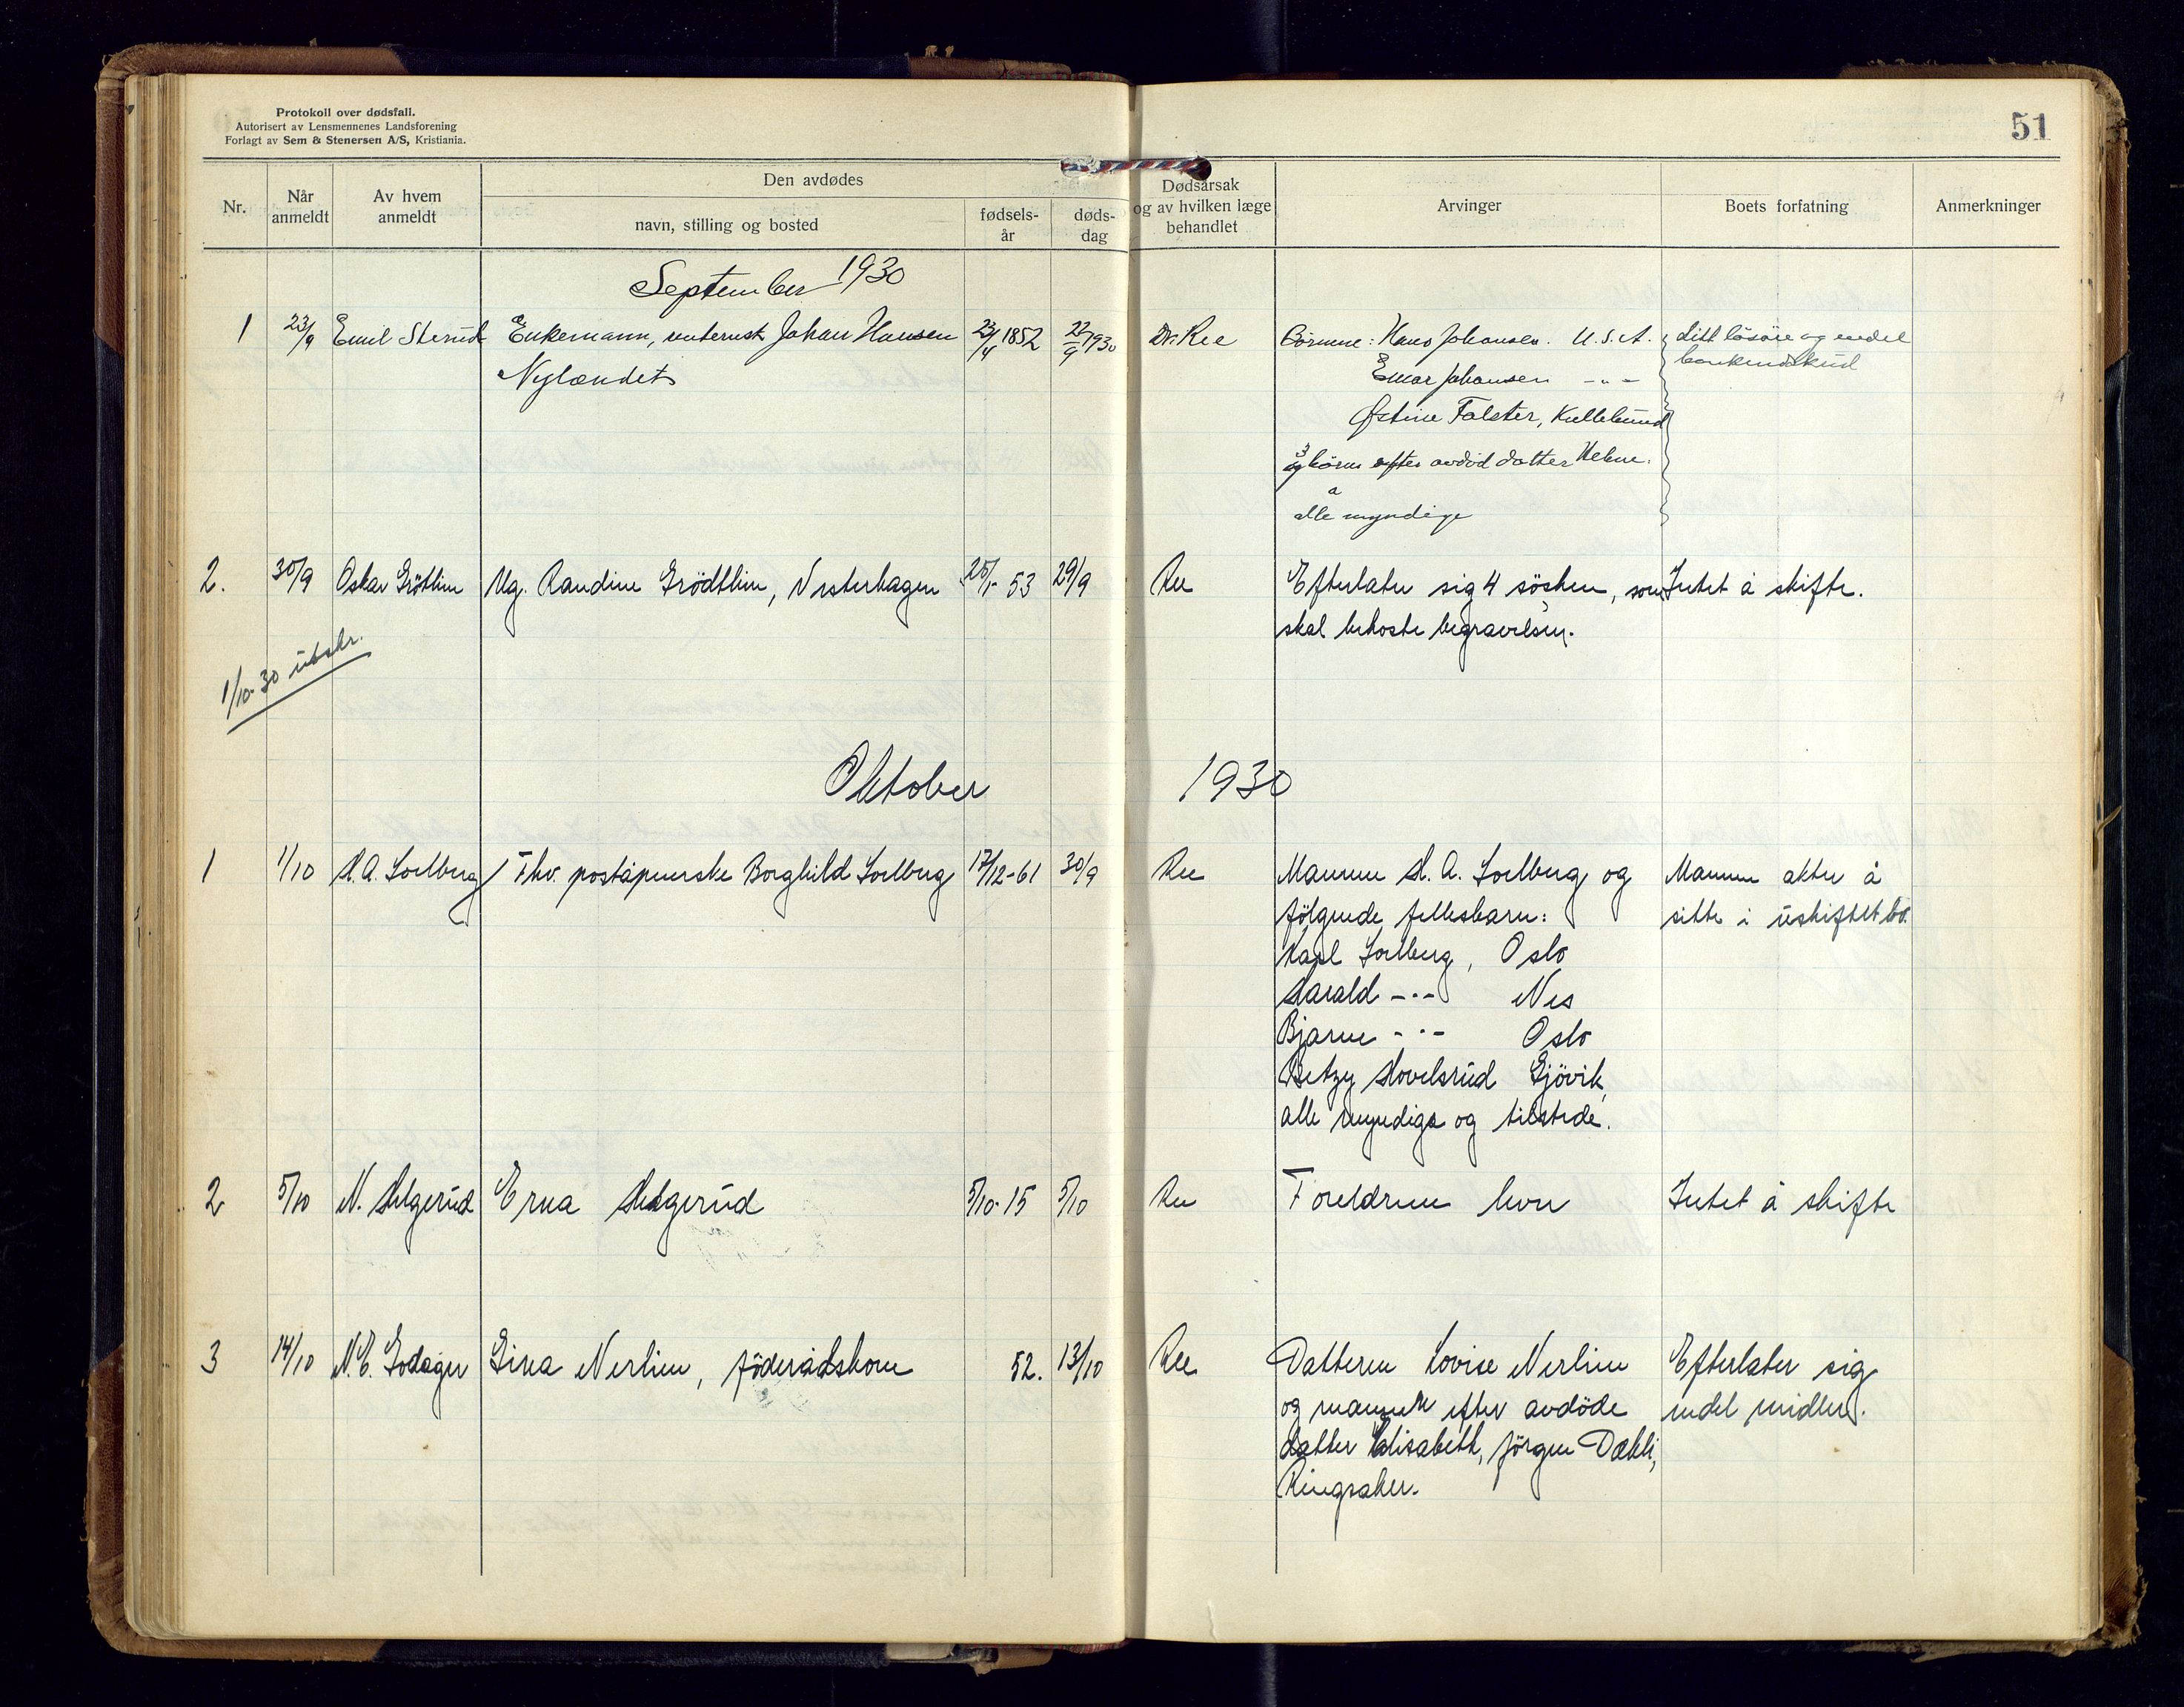 Protokoll over dødsfall.
Autorisert av Lensmennenes Landsforening
Forlagt av Sem & Stenersen A/S, Kristiania.
51
Nr.
Når anmeldt
Av hvem anmeldt
Den avdødes
navn, stilling og bosted
fødsels-år
døds-dag
Dødsårsak og av hvilken læge behandlet
Arvinger
Boets forfatning
Anmerkninger
September 1930
1 23/9 Emil Sterud Enkemann, Johan Hansen 23/4 1852 22/9 1930 Dr. Ree Börnene: Hans Johansen. U.S.A. Litt lösöre og endel
Nylændet Einar Johansen - " - bankindskud
Østine Falster, Kullebund
3 börn efter avdöd datter Helene.
alle myndige
2. 30/9 Oskar Grötlien Ug. Randine Grödtlien, Vesterhagen 53 29/9 Ree Efterlater sig 4 sösken, som Intet å skifte.
skal bekoste begravelsen.
1/10-30 utskr.
Oktober 1930
1 1/10 H. A. Soelberg Fhv. poståpnerske Borghild Soelberg 17/12-61 30/9 Ree Mannen H. A. Soelberg og Mannen akter å
fölgende fellesbarn: sitte i uskiftet bo.
Karl Soelberg, Oslo
Harald - " - Nes
Bjarne - " - Oslo
Betzy Hovelsrud Gjövik,
alle myndige og tilstede.
2 5/10 N. Helgerud Erna Helgerud 5/10-15 5/10 Ree Foreldrene lever Intet å skifte
3 14/10 N. E. Godager Gina Nerlien, föderådskone 52. 13/10 Ree Datteren Lovise Nerlien Efterlater sig
og mannen efter avdöde endel midler.
datter Elisabeth, Jörgen Dæhli,
Ringsaker.